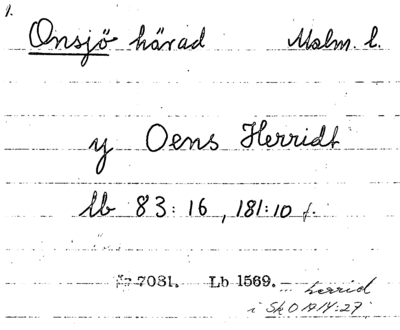 1.
Onsjö härad Malm. l.
y Oens Herridt
lb 83:16, 181:10 f.
7081. Lb 1569. herrid
i SkO